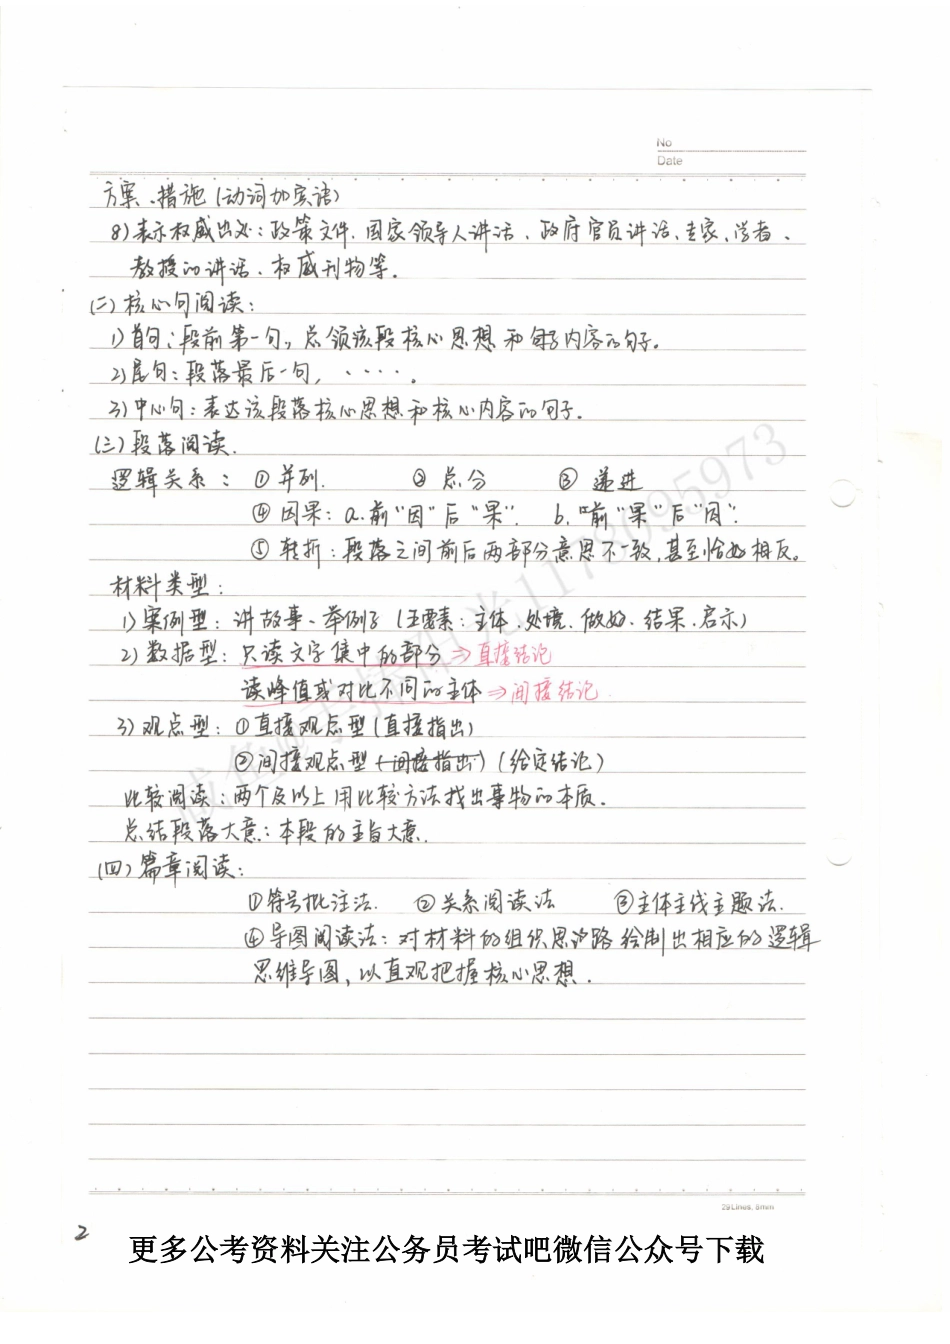 No
Date
方案、措施(动词加宾语)
8)表示权威出处:政策文件、国家领导人讲话、政府官员讲话、专家、学者、
教授的讲话、权威刊物等.
(二)核心句阅读:
1)首句:段前第一句,总领该段核心思想和内容的句子.
2)尾句:段落最后一句, ····.
3)中心句:表达该段落核心思想和核心内容的句子.
(三)段落阅读.
逻辑关系: ①并列. ②总、分 ③递进
④因果:a.前“因”后“果”. b.前“果”后“因”.
⑤转折:段落之间前后两部分意思不一致,甚至恰好相反。
材料类型:
1)案例型:讲故事、举例子(五要素:主体、处境、做法、结果、启示)
2)数据型:只读文字集中的部分⇒直接结论
读峰值或对比不同的主体⇒间接结论.
3)观点型:①直接观点型(直接指出)
②间接观点型(间接指出)(给定结论)
比较阅读:两个及以上用比较方法找出事物的本质.
总结段落大意:本段的主旨大意.
(四)篇章阅读:
①符号批注法. ②关系阅读法 ③主体主线主题法.
④导图阅读法:对材料的组织思路绘制出相应的逻辑
思维导图,以直观把握核心思想.
29Lines, 8mm
2
更多公考资料关注公务员考试吧微信公众号下载